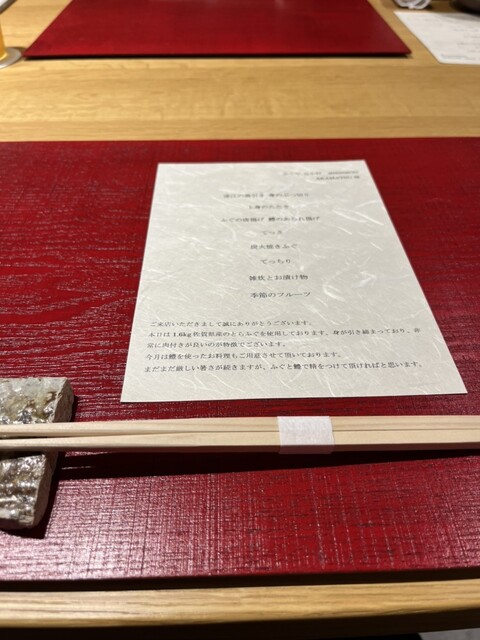 ふぐの唐揚げ 鱧のあられ揚げ
てっさ
炭火焼きふぐ
てっちり
雑炊とお漬け物
季節のフルーツ
ご来店いただきまして誠にありがとうございます。
本日は1.6kg佐賀県産のとらふぐを使用しております。身が引き締まっており、非
常に肉付きが良いのが特徴でございます。
今月は鱧を使ったお料理もご用意させて頂いております。
まだまだ厳しい暑さが続きますが、ふぐと鱧で精をつけて頂ければと思います。